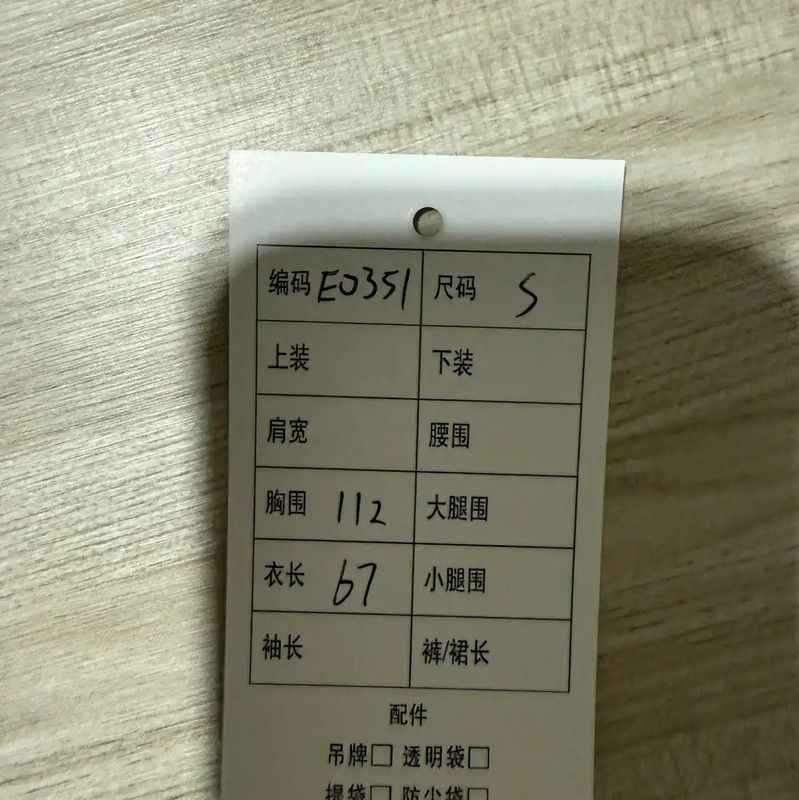 编码 E0351 尺码 S
上装 下装
肩宽 腰围
胸围 112 大腿围
衣长 67 小腿围
袖长 裤/裙长
配件
吊牌□ 透明袋□
提袋□ 防尘袋□